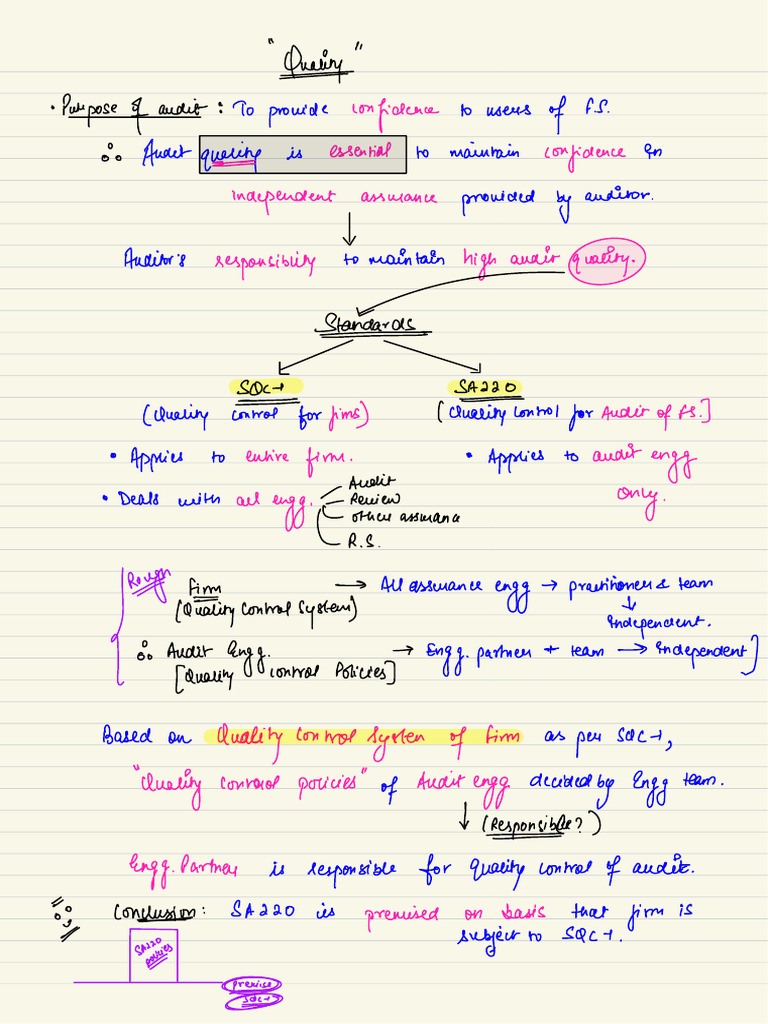 "Quality"
• Purpose of audit : To provide confidence to users of F.S.
∴ Audit quality is essential to maintain confidence in
independent assurance provided by auditor.
Auditor's responsiblity to maintain high audit quality.
Standards
SQC-1
SA220
(Quality control for firms)
[Quality Control for Audit of FS.]
• Applies to entire firm.
• Applies to audit engg
only.
• Deals with all engg.
Audit
Review
other assurance
R.S.
Rough
Firm → All assurance engg → practitioner & team
(Quality Control System)
Independent.
∴ Audit Engg. → Engg. partner + team → Independent]
[Quality control Policies]
Based on Quality Control System of Firm as per SQC-1,
"Quality control policies" of Audit engg decided by Engg team.
(Responsible?)
Engg. Partner is responsible for Quality control of audit.
∴ Conclusion: SA220 is premised on basis that firm is
subject to SQC-1.
SA220
policies
premise
SQC-1